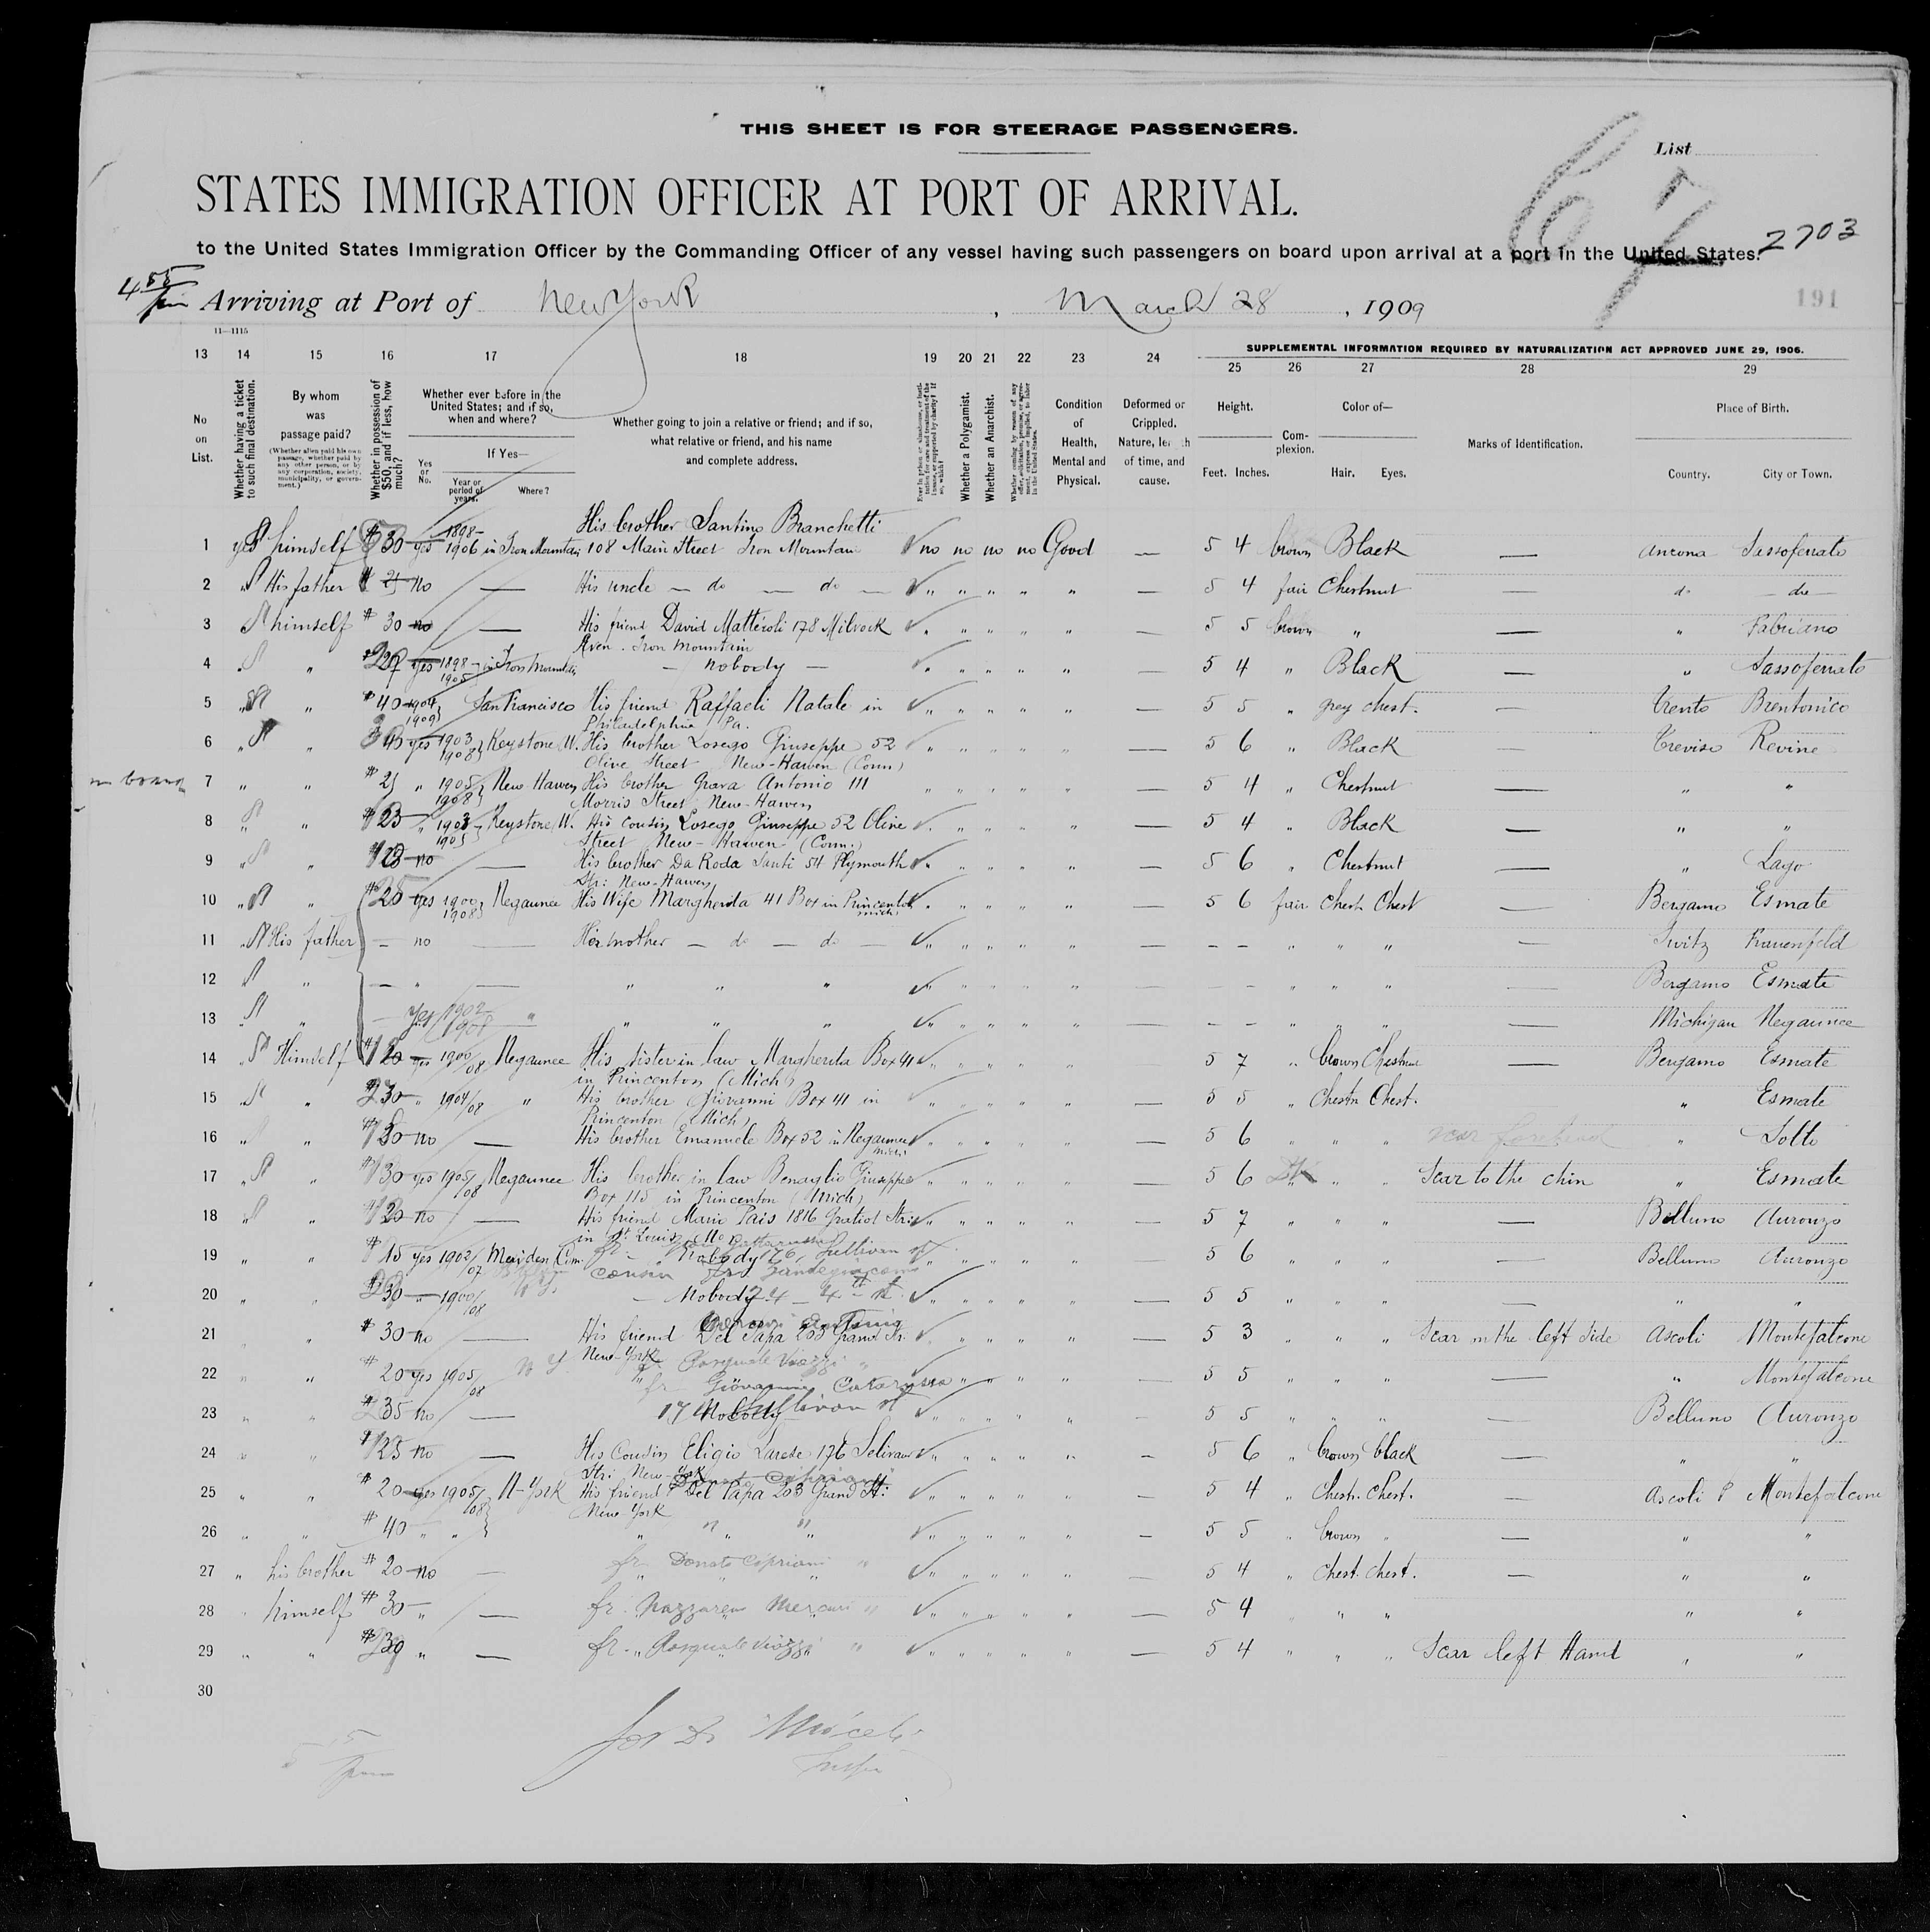 THIS SHEET IS FOR STEERAGE PASSENGERS.
List
67
STATES IMMIGRATION OFFICER AT PORT OF ARRIVAL.
2703
to the United States Immigration Officer by the Commanding Officer of any vessel having such passengers on board upon arrival at a port in the United States.
4 55/pm Arriving at Port of New York, March 28, 1909
191
11—1115
SUPPLEMENTAL INFORMATION REQUIRED BY NATURALIZATION ACT APPROVED JUNE 29, 1906.
13 14 15 16 17 18 19 20 21 22 23 24 25 26 27 28 29
No on List.
Whether having a ticket to such final destination.
By whom was passage paid?
(Whether alien paid his own passage, whether paid by any other person, or by any corporation, society, municipality, or government.)
Whether in possession of $50, and if less, how much?
Whether ever before in the United States; and if so, when and where?
Yes or No.
If Yes—
Year or period of years.
Where?
Whether going to join a relative or friend; and if so, what relative or friend, and his name and complete address.
Whether a Polygamist.
Whether an Anarchist.
Condition of Health, Mental and Physical.
Deformed or Crippled. Nature, length of time, and cause.
Height.
Feet. Inches.
Complexion.
Color of—
Hair. Eyes.
Marks of Identification.
Place of Birth.
Country. City or Town.
His brother Santino Branchetti
1 yes himself $30 yes 1898-1906 in Iron Mountain 108 Main Street Iron Mountain no no no no Good — 5 4 brown Black — Ancona Sassoferrato
2 " His father no — His uncle — do — do — " " " " " — 5 4 fair Chestnut — do — do —
3 himself $ 30 no — His friend David Matteioli 178 Milwock " " " " " — 5 5 brown " — " Fabriano
Aven. Iron Mountain
4 " " yes 1898-1905 in Iron Mountain — nobody — " " " " " — 5 4 " Black — " Sassoferrato
5 " " $ 40 1904 1909 San Francisco His friend Raffaeli Natale in " " " " " — 5 5 " grey chest. — Trento Brentonico
Philadelphia Pa.
6 " " yes 1903 1908 Keystone W. His brother Losego Giuseppe 52 " " " " " — 5 6 " Black — Treviso Revine
Olive Street New-Hawen (Conn)
on board 7 " " $ 25 " 1905 1908 New Hawen His brother Grava Antonio 111 " " " " " — 5 4 " Chestnut — " "
Morris Street New-Hawen
8 " " $23 " 1903 1905 Keystone W. His cousin Losego Giuseppe 52 Oline " " " " " — 5 4 " Black — " "
Street New-Hawen (Conn.)
9 " " no — His brother Da Roda Santi 54 Plymouth " " " " " — 5 6 " Chestnut — " Lago
Str: New-Hawen
10 " " $25 yes 1900 1908 Negaunee His Wife Margherita 41 Box in Princenton Mich " " " " " — 5 6 fair Chest Chest — Bergamo Esmate
11 " His father — no — His mother — do — do — " " " " " — - - " " " — Switz Frauenfeld
12 " — " — " " " " " " " " — - - " " " — Bergamo Esmate
13 " " — yes 1902 1908 " " " " " " " " " — - - " " " — Michigan Negaunee
14 " Himself $ 20 yes 1900/08 Negaunee His sister in law Margherita Box 41 " " " " " — 5 7 " brown Chestnut — Bergamo Esmate
in Princenton (Mich)
15 " " 30 " 1904/08 " His brother Giovanni Box 41 in " " " " " — 5 5 " Chestn Chest. " Esmate
Princenton (Mich)
16 " " no — His brother Emanuele Box 52 in Negaunee Mich: " " " " " — 5 6 " " " scar forehead " Solto
17 " " $30 yes 1905/08 Negaunee His brother in law Benaglio Giuseppe " " " " " — 5 6 DK " " Scar to the chin " Esmate
Box 115 in Princenton (Mich)
18 " " no — His friend Marie Pais 1816 Gratiot Str. " " " " " — 5 7 " " " — Belluno Auronzo
in St Louis Mo
19 " " $ 15 yes 1902/07 Meriden Conn. Nobody 176 Sullivan st " " " " " — 5 6 " " " — Belluno Auronzo
cousin
20 " " 30 " 1900/08 — Nobody 24 — 4th st. " " " " " — 5 5 " " " — " "
21 " " $ 30 no — His friend Del Papa 203 Grand Str. " " " " " — 5 3 " " " Scar on the left side Ascoli Montefalcone
New-York
22 " " $ 20 yes 1905/08 N Y. Pasquale Viozzi " " " " " " — 5 5 " " " — " Montefalcone
fr Giovanni Catarussa
23 " " $ 35 no — Nobody 174 Sullivan st " " " " " - 5 5 " " " — Belluno Auronzo
24 " " $ 25 no — His Cousin Eligio Larese 176 Selivan " " " " " - 5 6 " brown black — " "
Str: New-York
25 " " $ 20 yes 1905/08 N-York His friend Del Papa 203 Grand St: " " " " " — 5 4 " Chest. Chest. — Ascoli P Montefalcone
New York
26 " " $ 40 " " " " " " " " " " - 5 5 " brown " — " "
27 " his brother $ 20 no — fr Donato Cipriani " " " " " " — 5 4 " Chest. chest. — " "
28 " himself $ 30 " — fr. Nazzareno Mercuri " " " " " " — 5 4 " " " " "
29 " " $ 30 " — fr. Pasquale Viozzi " " " " " " — 5 4 " " " Scar left Hand " "
30